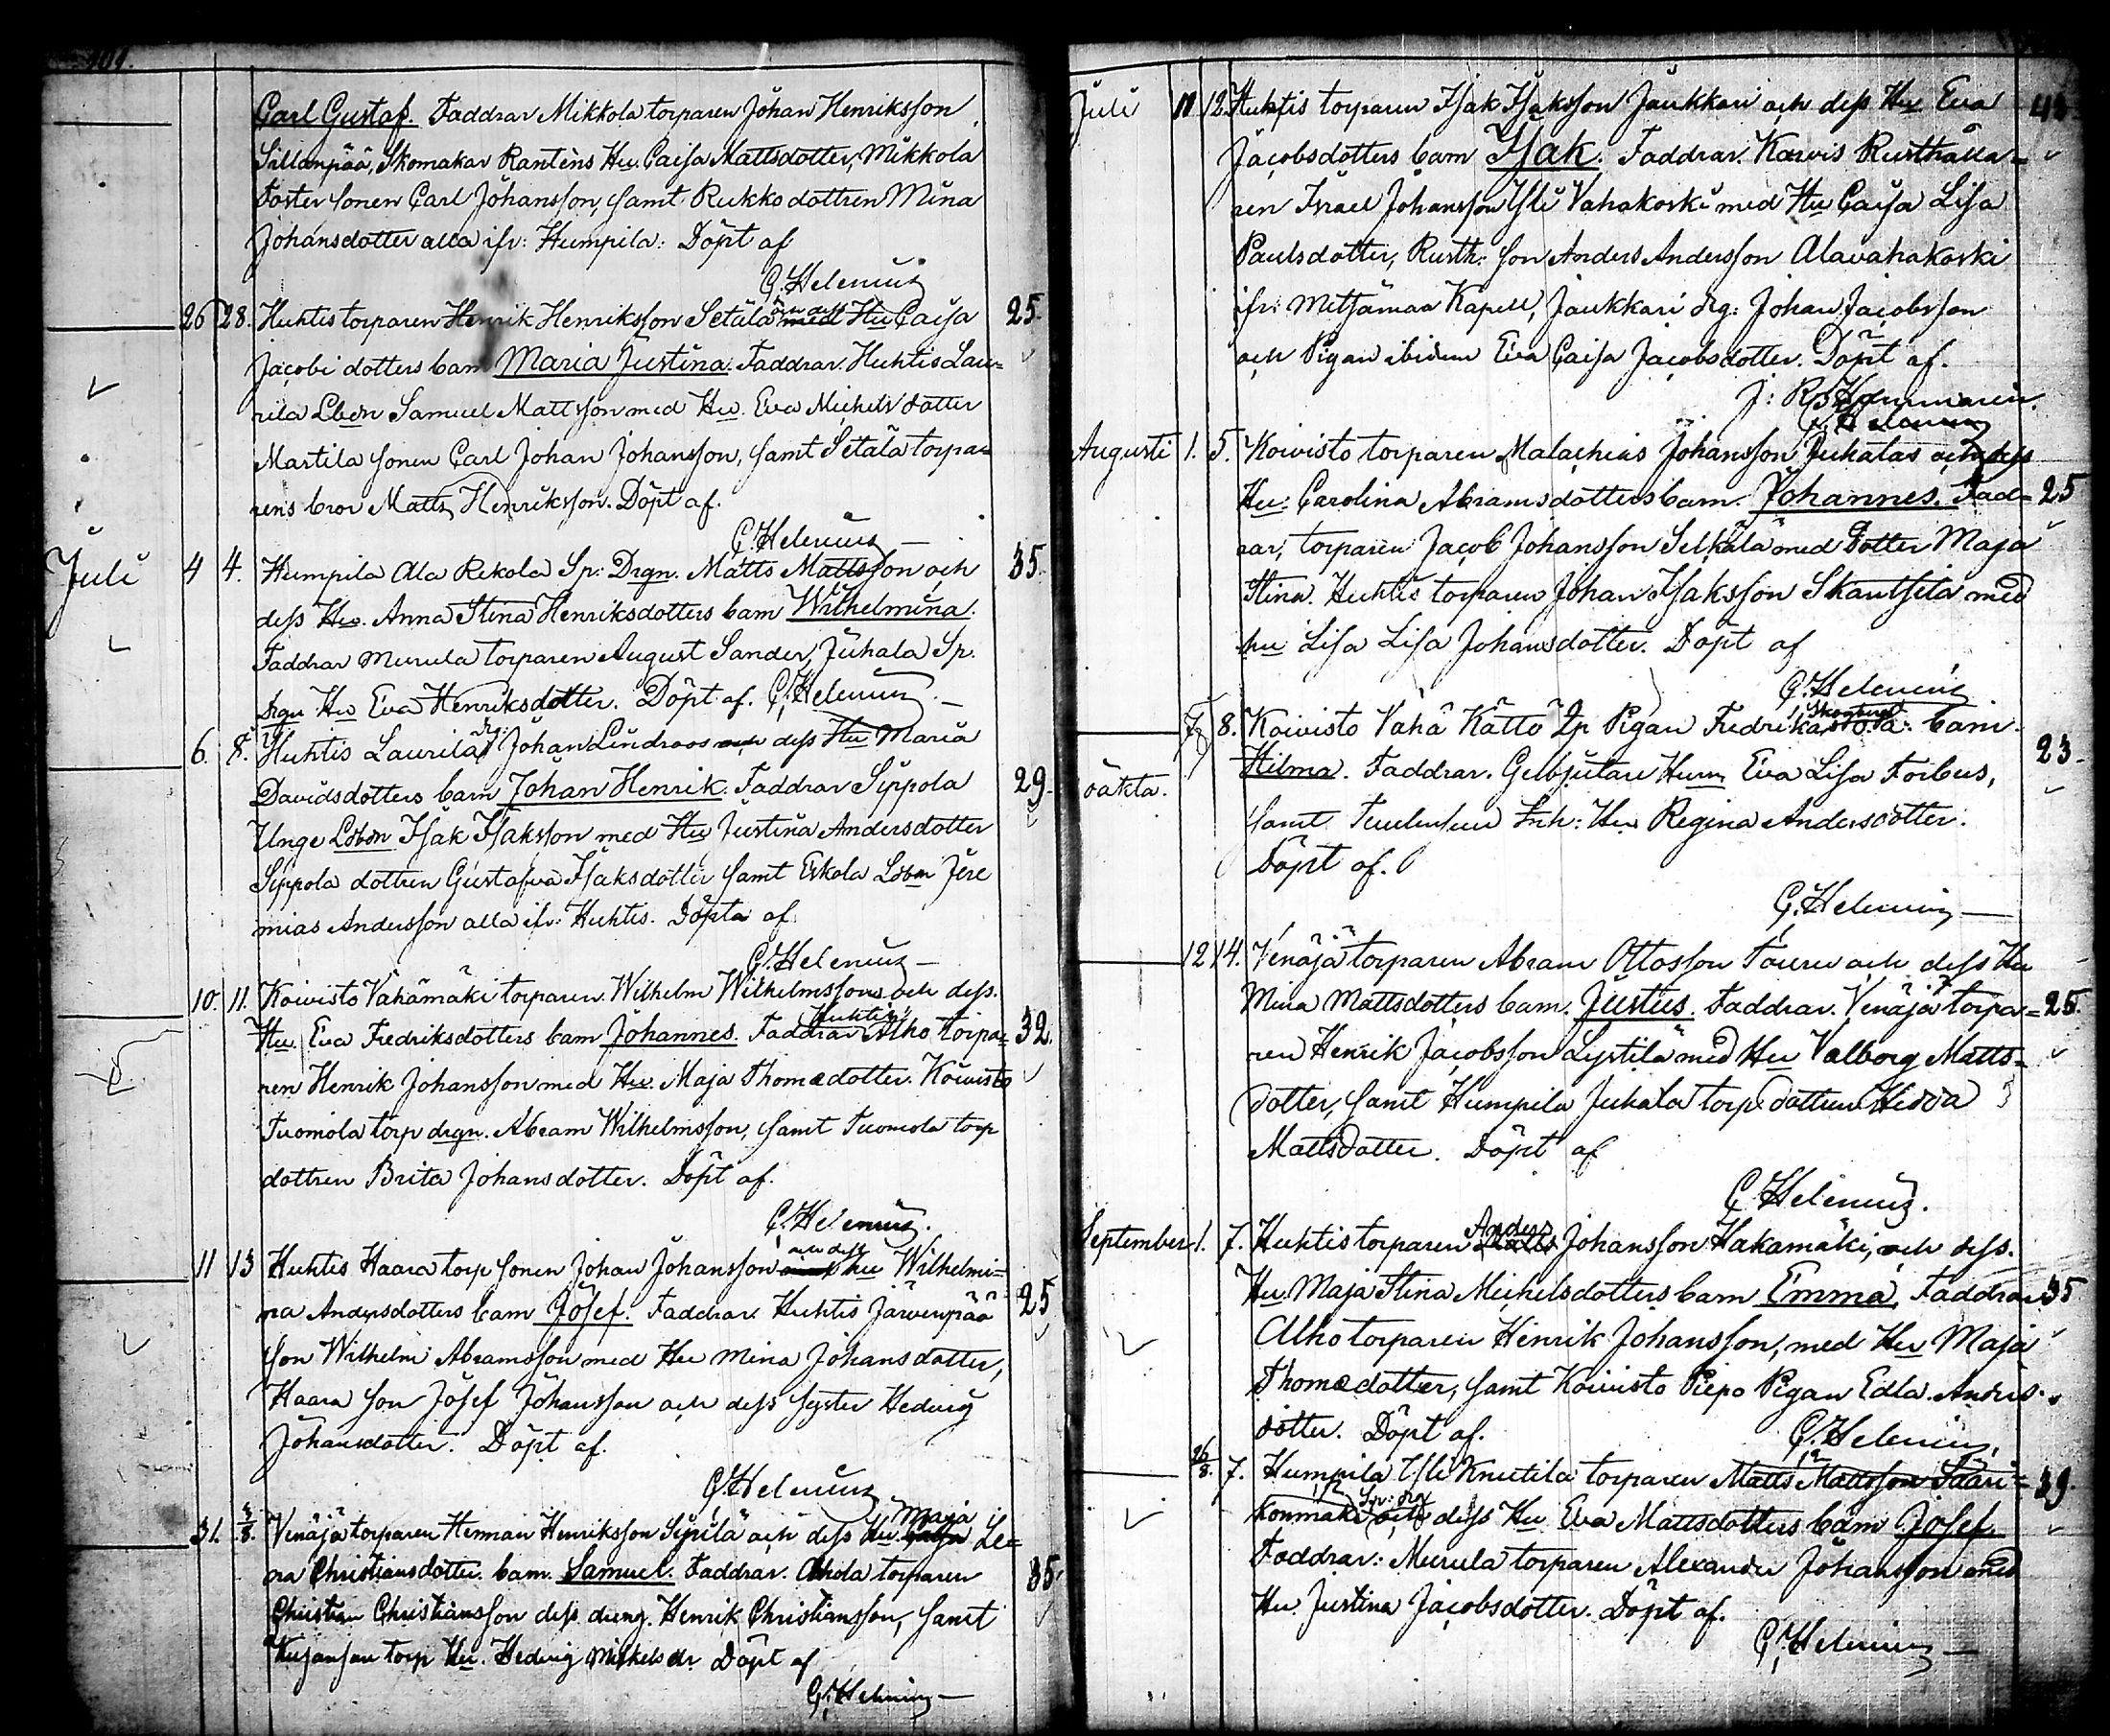 Carl Gustaf. Faddrar Mikkola torparen Johan Henriksson
Sillanpää, Skomakar Ranténs Hu. Caisa Mattsdotter, Mikkola
Foster sonen Carl Johansson, samt Rukko dottren Mina
Johansdotter alla ifr: Humpila: Döpt af
G. Helenius
26 28. Huhtis torparen Henrik Henriksson Setälä och dess Hu Caisa 25.
Jacobi dotters barn Maria Justina. Faddrar. Huhtis Lau=
rila Lbdn Samuel Mattsson med Hu. Eva Michels dotter
Martila sonen Carl Johan Johansson, samt Setälä torpa=
rens bror Matts Henriksson. Döpt af.
G. Helenius
Juli 4 4. Humpila Ala Rekola Sp: Drgn. Matts Mattsson och 35.
dess Hu. Anna Stina Henriksdotters barn Wilhelmina.
Faddrar Murula torparen August Sander, Juhala Sp.
drgn Hu Eva Henriksdotter. Döpt af. G. Helenius
6. 8. Huhtis Laurila drg: Johan Lindroos och dess Hu Maria
Davidsdotters barn Johan Henrik. Faddrar Sippola 29.
Unge Lbdn Isak Isaksson med Hu Justina Andersdotter
Sippola dottren Gustafva Isaksdotter samt Eskola Lbdn Jere
mias Andersson alla ifr: Huhtis. Döpta af.
G. Helenius
10. 11. Koivisto Vähämäki torparen. Wilhelm Wilhelmssons och dess.
Hu. Eva Fredriksdotters barn Johannes. Faddrar Huhtis Alho torpa= 32.
ren Henrik Johansson med Hu. Maja Thomædotter. Koivisto
Tuomola torp drgn. Abram Wilhelmsson, samt Tuomola torp
dottren Brita Johansdotter. Döpt af.
G. Helenius.
11 13 Huhtis Haara torp sonen Johan Johansson och dess hu Wilhelmi=
na Andersdotters barn Josef. Faddrar. Huhtis Järvenpää 25
son Wilhelm Abramsson med Hu Mina Johansdotter,
Haara son Josef Johansson och dess syster Hedvig
Johansdotter. Döpt af.
G. Helenius
31. 3/8. Venäjä torparen Herman Henriksson Sipilä och dess Hu. Maja Le=
na Christiansdotter. barn. Samuel. Faddrar. Ahola torparen 35.
Christian Christiansson dess dreng. Henrik Christiansson, samt
Kujansuu torp Hu. Hedvig Mickelsdr. Döpt af
G. Helenius
Juli 11 12. Huhtis torparen Isak Isaksson Jaukkari och dess Hu Eva
Jacobsdotters barn Isak. Faddrar. Karvis Rusthålla=
ren Israel Johansson Yli Vahakoski med Hu Caisa Lisa
Paulsdotter, Rusth: son Anders Andersson Alavahakoski
ifr: Metsämaa Kapell, Jaukkari drg: Johan Jacobsson
och Pigan ibidem Eva Caisa Jacobsdotter. Döpt af.
J: R Hammarén.
Augusti 1. 5. Koivisto torparen Malachias Johansson Juhalas och dess
Hu. Carolina Abramsdotters barn. Johannes. Fad= 25
rar, torparen Jacob Johansson Selkälä med Dotter Maja
Stina. Huhtis torparen Johan Isaksson Skantsilä med
hu Lisa Lisa Johansdotter. Döpt af
G. Helenius
7. 8. Koivisto Vähä Kättö Ip Pigan Fredrika barn
Hilma. Faddrar. Gelbjutare Hu Eva Lisa Forbus, 23.
oäkta.
samt Inh: Hu Regina Andersdotter.
Döpt af.
G. Helenius
12 14. Venäjä torparen Abram Ottosson Touru och dess Hu
Mina Mattsdotters barn. Justus. Faddrar. Venäjä torpa= 25.
ren Henrik Jacobsson Lystilä med Hu Valborg Matts=
dotter, samt Humpila Juhala torp dottren Hedda
Mattsdotter. Döpt af
G. Helenius.
September 1. 7. Huhtis torparen Anders Johansson Hakamäki, och dess.
Hu. Maja Stina Michelsdotters barn Emma, Faddrar 35
Alho torparen Henrik Johansson, med Hu Maja
Thomædotter, samt Koivisto Piepo Pigan Edla. Anders
dotter. Döpt af.
G. Helenius.
26/8. 7. Humpila Yli Knutila torparen Matts Mattsson Saari= 39.
konmäki och dess Hu Eva Mattsdotters barn Josef.
Faddrar: Murula torparen Alexander Johansson med
Hu. Justina Jacobsdotter. Döpt af.
G. Helenius